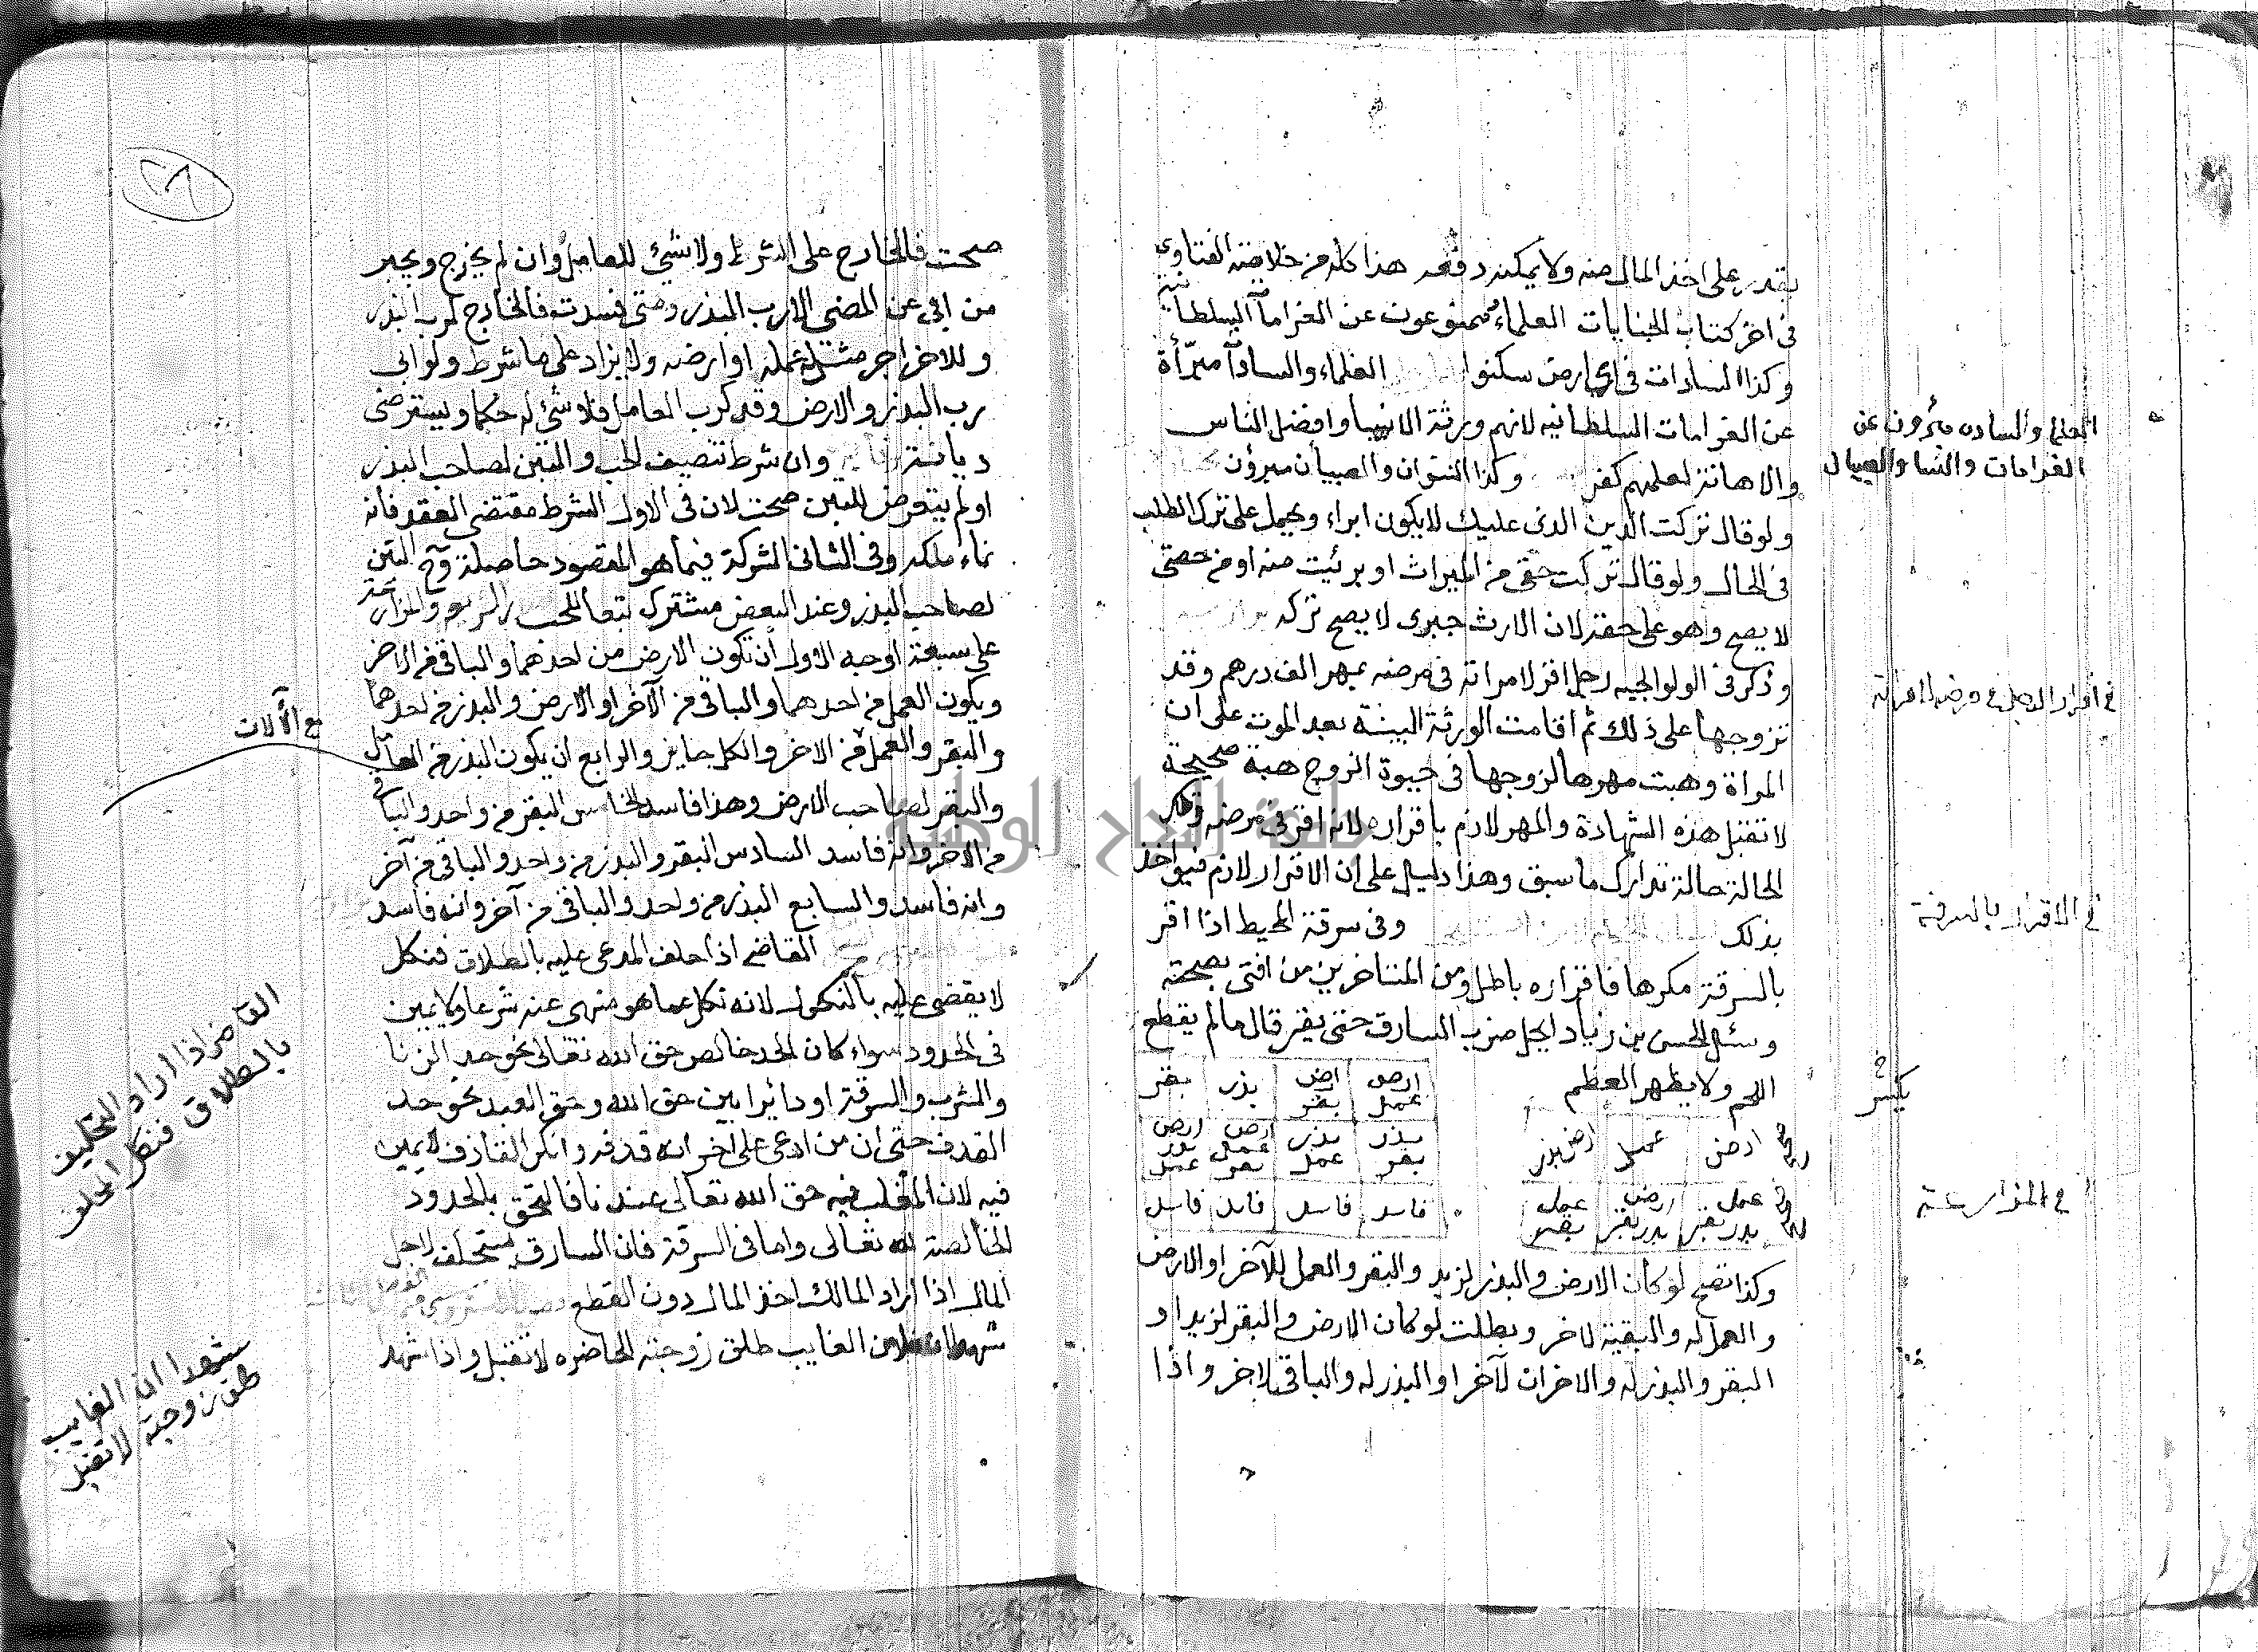 يقدر على اخذ المال منه ولا يمكنه دفعه هذا كله من خلاصة الفتاوى
في اخر كتاب الجنايات العلماء ممنوعون عن الغرامات السلطانية
وكذا السادات في اي ارض سكنوا العلماء والسادات مبرّأة
عن الغرامات السلطانيه لانهم ورثة الانبيا وافضل الناس
والاهانة لعلمهم كفر وكذا النسوان والصبيان مبرؤن
ولو قال تركت الدين الذي عليك لا يكون ابراء ويحمل على ترك الطلب
في الحال ولو قال تركت حقي من الميراث او برئيت منه او من حصتي
لا يصح وهو على حقه لان الارث جبري لا يصح تركه
وذكر في الولوالجيه رجل اقر لامراته في مرضه بمهر الف درهم وقد
تزوجها على ذلك ثم اقامت الورثة البينة بعد الموت على ان
المراة وهبت مهرها لزوجها في حيوة الزوج هبة صحيحة
لا تقبل هذه الشهادة والمهر لازم باقراره لانه اقر في مرضه
الحالة حالة تدارك ما سبق وهذا دليل على ان الاقرار لازم فيؤاخذ
بذلك وفي سرقة المحيط اذا اقر
بالسرقة مكرها فاقراره باطل ومن المتاخرين من افتى بصحته
وسئل الحسن بن زياد ايحل ضرب السارق حتى يقر قال ما لم يقطع
اللحم ولا يظهر العظم
ارض عمل
ارض بقر
بذر
بقر
بذر بقر
بذر عمل
ارض عمل بقر
ارض بذر عمل
فاسد فاسد فاسد فاسد
ارض
عمل
ارض بذر
عمل بذر بقر
ارض بذر بقر
عمل بقر
وكذا تصح لو كان الارض والبذر لزيد والبقر والعمل للآخر او الارض
والعمل له والبقية لاخر وبطلت لو كان الارض والبقر لزيد او
البقر والبذر له والاخران لآخر او البذر له والباقي لاخر واذا
العلما والساده مبرؤن عن
الغرامات والنسا والصبيان
في اقرار الرجل في مرضه لامراته
في الاقرار بالسرقة
في المزارعة
صحت فالخارج على الشرط ولا شيئ للعامل وان لم يخرج ويجبر
من ابى عن المضي الا رب البذر ومتى فسدت فالخارج لرب البذر
وللاخر اجر مثل عمله او ارضه ولا يزاد على ما شرط ولو ابى
رب البذر والارض وقد كرب العامل فلا شئ له حكما ويسترضى
ديانة وان شرط تنصيف الحب والتبن لصاحب البذر
او لم يتعرض للتبن صحت لان في الاول الشرط مقتضى العقد فانه
نماء ملكه وفي الثاني الشركة فيما هو المقصود حاصلة وح التبن
لصاحب البذر وعند البعض مشترك تبعا للحب والمزارعة
على سبعة اوجه الاول ان تكون الارض من احدهما والباقي من الاخر
ويكون العمل من احدهما والباقي من الآخر او الارض والبذر من احدهما
والبقر والعمل من الاخر والكل جايز والرابع ان يكون البذر من العامل
والبقر لصاحب الارض وهذا فاسد الخامس البقر من واحد والباقي
من الاخر وانه فاسد السادس البقر والبذر من واحد والباقي من آخر
وانه فاسد والسابع البذر من واحد والباقي من آخر وانه فاسد
القاضي اذا حلف المدعى عليه بالطلاق فنكل
لا يقضي عليه بالنكول لانه نكل عما هو منهي عنه شرعا ولا يمين
في الحدود سواء كان الحد خالص حق الله تعالى نحو حد الزنا
والشرب والسرقة او دائرا بين حق الله وحق العبد نحو حد
القذف حتى ان من ادعى على اخر انه قذفه وانكر القاذف لا يمين
فيه لان المغلب فيه حق الله تعالى عندنا فالتحق بالحدود
الخالصة لله تعالى واما في السرقة فان السارق يستحلف لاجل
المال اذا اراد المالك اخذ المال دون القطع
ان الغايب طلق زوجته الحاضره لا تقبل واذا شهد
مع الآلات
القاضي اذا اراد التحليف
بالطلاق فنكل الحلف
شهدا ان الغايب
طلق زوجته لا تقبل